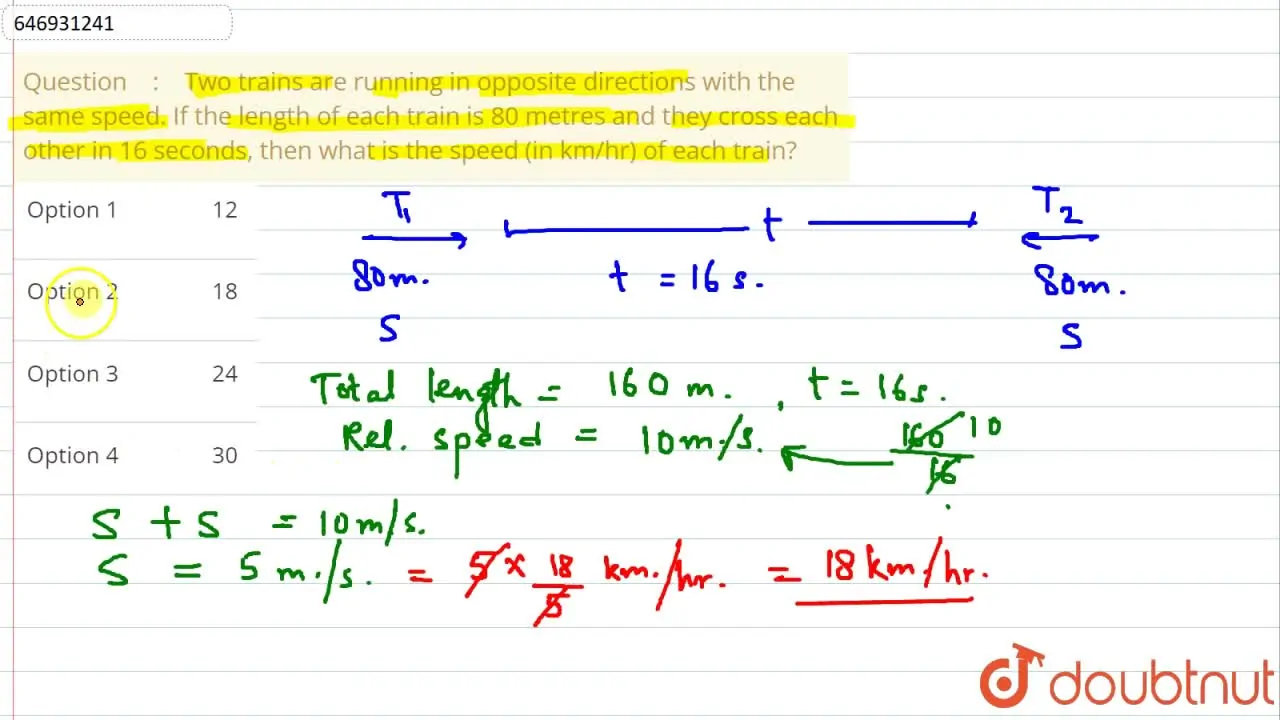 646931241
Question : Two trains are running in opposite directions with the
same speed. If the length of each train is 80 metres and they cross each
other in 16 seconds, then what is the speed (in km/hr) of each train?
Option 1 12
Option 2 18
Option 3 24
Option 4 30
T1 t T2
80m. t = 16 s. 80m.
S S
Total length = 160 m. , t = 16s.
Rel. speed = 10 m/s. 160/16 10
S + S = 10 m/s.
S = 5 m./s. = 5 x 18/5 km./hr. = 18 km/hr.
doubtnut